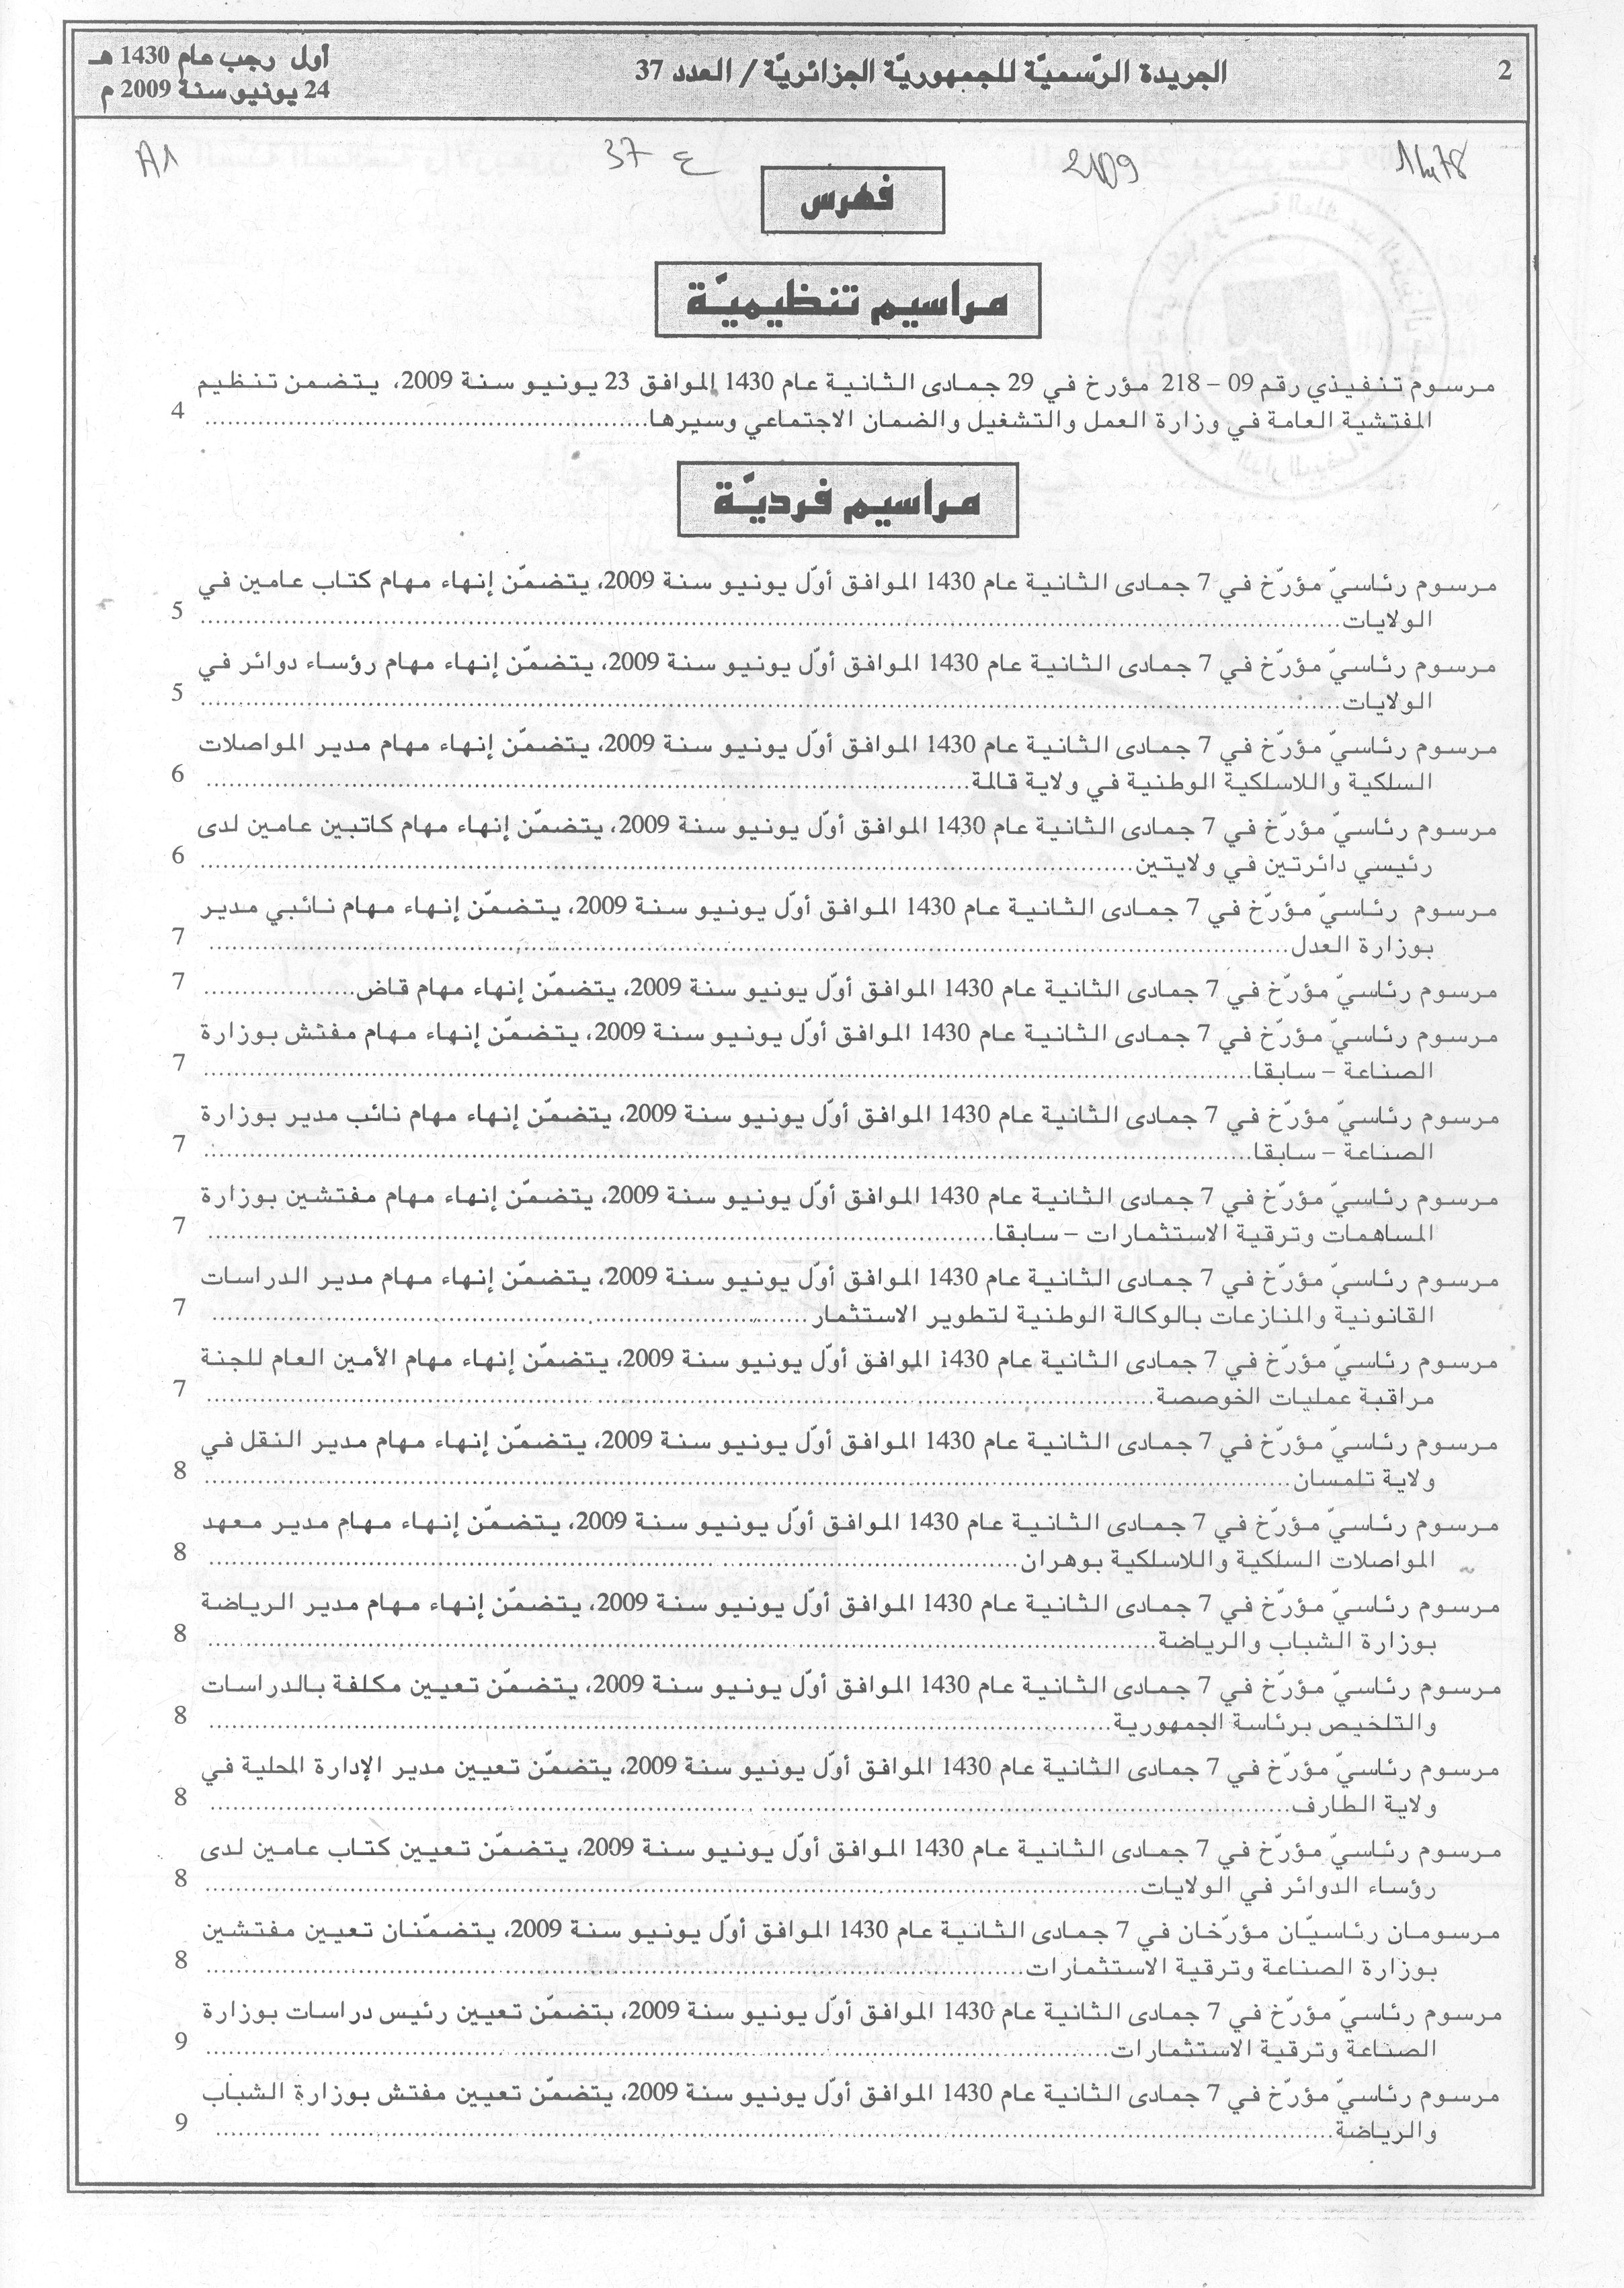 2
الجريدة الرّسميّة للجمهوريّة الجزائريّة / العدد 37
أول رجب عام 1430 هـ
24 يونيو سنة 2009 م
A1
37 ع
2009
فهرس
مراسيم تنظيميّة
مرسوم تنفيذي رقم 09 – 218 مؤرخ في 29 جمادى الثانية عام 1430 الموافق 23 يونيو سنة 2009، يتضمن تنظيم
المفتشية العامة في وزارة العمل والتشغيل والضمان الاجتماعي وسيرها........ 4
مراسيم فرديّة
مرسوم رئاسيّ مؤرّخ في 7 جمادى الثانية عام 1430 الموافق أوّل يونيو سنة 2009، يتضمّن إنهاء مهام كتاب عامين في
الولايات........ 5
مرسوم رئاسيّ مؤرّخ في 7 جمادى الثانية عام 1430 الموافق أوّل يونيو سنة 2009، يتضمّن إنهاء مهام رؤساء دوائر في
الولايات........ 5
مرسوم رئاسيّ مؤرّخ في 7 جمادى الثانية عام 1430 الموافق أوّل يونيو سنة 2009، يتضمّن إنهاء مهام مدير المواصلات
السلكية واللاسلكية الوطنية في ولاية قالمة........ 6
مرسوم رئاسيّ مؤرّخ في 7 جمادى الثانية عام 1430 الموافق أوّل يونيو سنة 2009، يتضمّن إنهاء مهام كاتبين عامين لدى
رئيسي دائرتين في ولايتين........ 6
مرسوم رئاسيّ مؤرّخ في 7 جمادى الثانية عام 1430 الموافق أوّل يونيو سنة 2009، يتضمّن إنهاء مهام نائبي مدير
بوزارة العدل........ 7
مرسوم رئاسيّ مؤرّخ في 7 جمادى الثانية عام 1430 الموافق أوّل يونيو سنة 2009، يتضمّن إنهاء مهام قاض........ 7
مرسوم رئاسيّ مؤرّخ في 7 جمادى الثانية عام 1430 الموافق أوّل يونيو سنة 2009، يتضمّن إنهاء مهام مفتش بوزارة
الصناعة – سابقا........ 7
مرسوم رئاسيّ مؤرّخ في 7 جمادى الثانية عام 1430 الموافق أوّل يونيو سنة 2009، يتضمّن إنهاء مهام نائب مدير بوزارة
الصناعة – سابقا........ 7
مرسوم رئاسيّ مؤرّخ في 7 جمادى الثانية عام 1430 الموافق أوّل يونيو سنة 2009، يتضمّن إنهاء مهام مفتشين بوزارة
المساهمات وترقية الاستثمارات – سابقا........ 7
مرسوم رئاسيّ مؤرّخ في 7 جمادى الثانية عام 1430 الموافق أوّل يونيو سنة 2009، يتضمّن إنهاء مهام مدير الدراسات
القانونية والمنازعات بالوكالة الوطنية لتطوير الاستثمار........ 7
مرسوم رئاسيّ مؤرّخ في 7 جمادى الثانية عام 1430 الموافق أوّل يونيو سنة 2009، يتضمّن إنهاء مهام الأمين العام للجنة
مراقبة عمليات الخوصصة........ 7
مرسوم رئاسيّ مؤرّخ في 7 جمادى الثانية عام 1430 الموافق أوّل يونيو سنة 2009، يتضمّن إنهاء مهام مدير النقل في
ولاية تلمسان........ 8
مرسوم رئاسيّ مؤرّخ في 7 جمادى الثانية عام 1430 الموافق أوّل يونيو سنة 2009، يتضمّن إنهاء مهام مدير معهد
المواصلات السلكية واللاسلكية بوهران........ 8
مرسوم رئاسيّ مؤرّخ في 7 جمادى الثانية عام 1430 الموافق أوّل يونيو سنة 2009، يتضمّن إنهاء مهام مدير الرياضة
بوزارة الشباب والرياضة........ 8
مرسوم رئاسيّ مؤرّخ في 7 جمادى الثانية عام 1430 الموافق أوّل يونيو سنة 2009، يتضمّن تعيين مكلفة بالدراسات
والتلخيص برئاسة الجمهورية........ 8
مرسوم رئاسيّ مؤرّخ في 7 جمادى الثانية عام 1430 الموافق أوّل يونيو سنة 2009، يتضمّن تعيين مدير الإدارة المحلية في
ولاية الطارف........ 8
مرسوم رئاسيّ مؤرّخ في 7 جمادى الثانية عام 1430 الموافق أوّل يونيو سنة 2009، يتضمّن تعيين كتاب عامين لدى
رؤساء الدوائر في الولايات........ 8
مرسومان رئاسيّان مؤرّخان في 7 جمادى الثانية عام 1430 الموافق أوّل يونيو سنة 2009، يتضمّنان تعيين مفتشين
بوزارة الصناعة وترقية الاستثمارات........ 8
مرسوم رئاسيّ مؤرّخ في 7 جمادى الثانية عام 1430 الموافق أوّل يونيو سنة 2009، بتضمّن تعيين رئيس دراسات بوزارة
الصناعة وترقية الاستثمارات........ 9
مرسوم رئاسيّ مؤرّخ في 7 جمادى الثانية عام 1430 الموافق أوّل يونيو سنة 2009، يتضمّن تعيين مفتش بوزارة الشباب
والرياضة........ 9